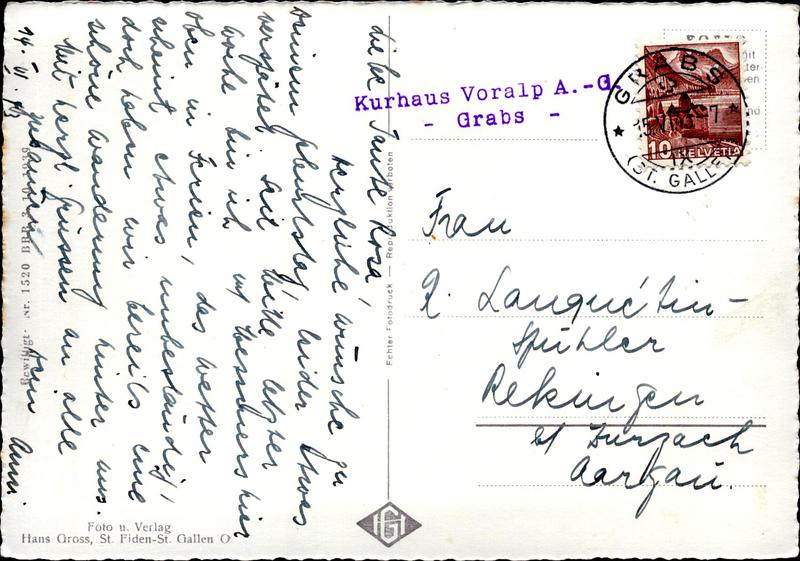 liebe Tante Rosa!
Herzliche Wünsche zu
Deinem leider etwas
verspätet. Seit Mitte letzter
Woche bin ich hier
oben in Ferien, das Wetter
scheint etwas unbeständig,
doch haben wir bereits eine
schöne Wanderung hinter uns.
Mit herzl. Grüssen an alle
Anni.
14. VI. 43
Bewilligt. Nr. 1520 BRB 3.10.1939
Foto u. Verlag
Hans Gross, St. Fiden-St. Gallen O.
Fehter Fotodruck — Reproduktion verboten
HG
Kurhaus Voralp A.-G.
- Grabs -
GRABS
15.VI.43-7
(ST. GALLEN)
10 HELVETIA
Frau
R. Lanquétin-
Spühler
Rekingen
b/ Zurzach
Aargau.